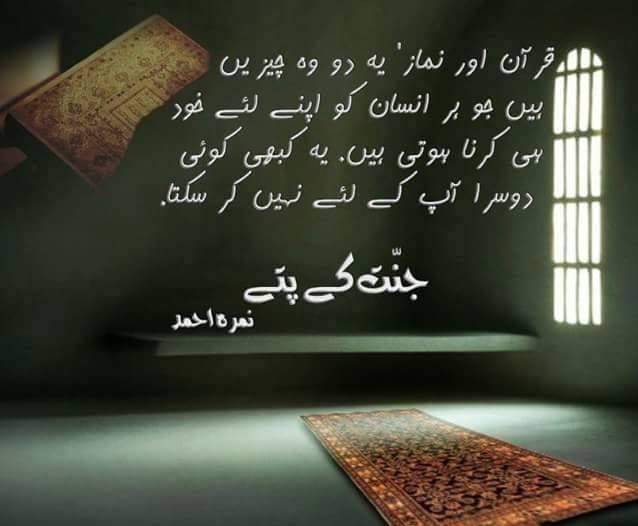 قرآن اور نماز' یہ دو وہ چیزیں
ہیں جو ہر انسان کو اپنے لئے خود
ہی کرنا ہوتی ہیں. یہ کبھی کوئی
دوسرا آپ کے لئے نہیں کر سکتا.
جنّت کے پتے
نمرہ احمد